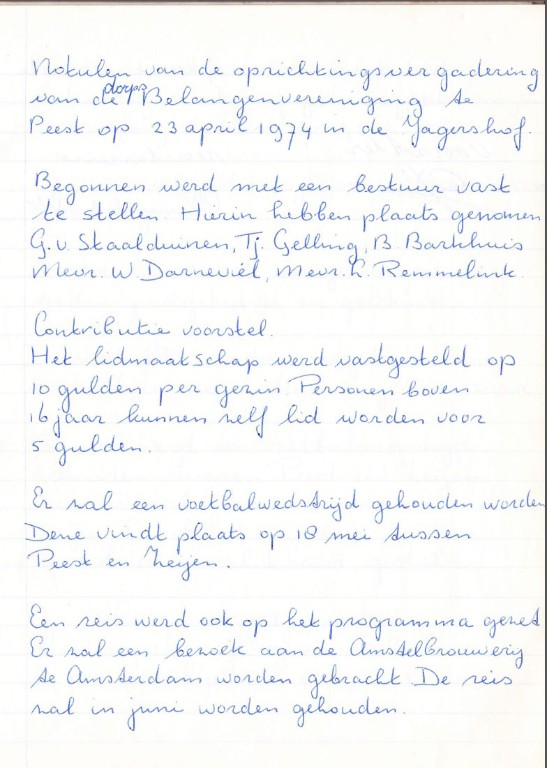 Notulen van de oprichtingsvergadering
van de dorps Belangenvereniging te
Peest op 23 april 1974 in de Jagershof.
Begonnen werd met een bestuur vast
te stellen. Hierin hebben plaats genomen
G. v. Staalduinen, Tj. Gelling, B. Barkhuis
Mevr. W. Darneviel, Mevr. L. Remmelink.
Contributie voorstel.
Het lidmaatschap werd vastgesteld op
10 gulden per gezin Personen boven
16 jaar kunnen zelf lid worden voor
5 gulden.
Er zal een voetbalwedstrijd gehouden worden
Deze vindt plaats op 18 mei tussen
Peest en Zeijen.
Een reis werd ook op het programma gezet
Er zal een bezoek aan de Amstelbrouwerij
te Amsterdam worden gebracht De reis
zal in juni worden gehouden.